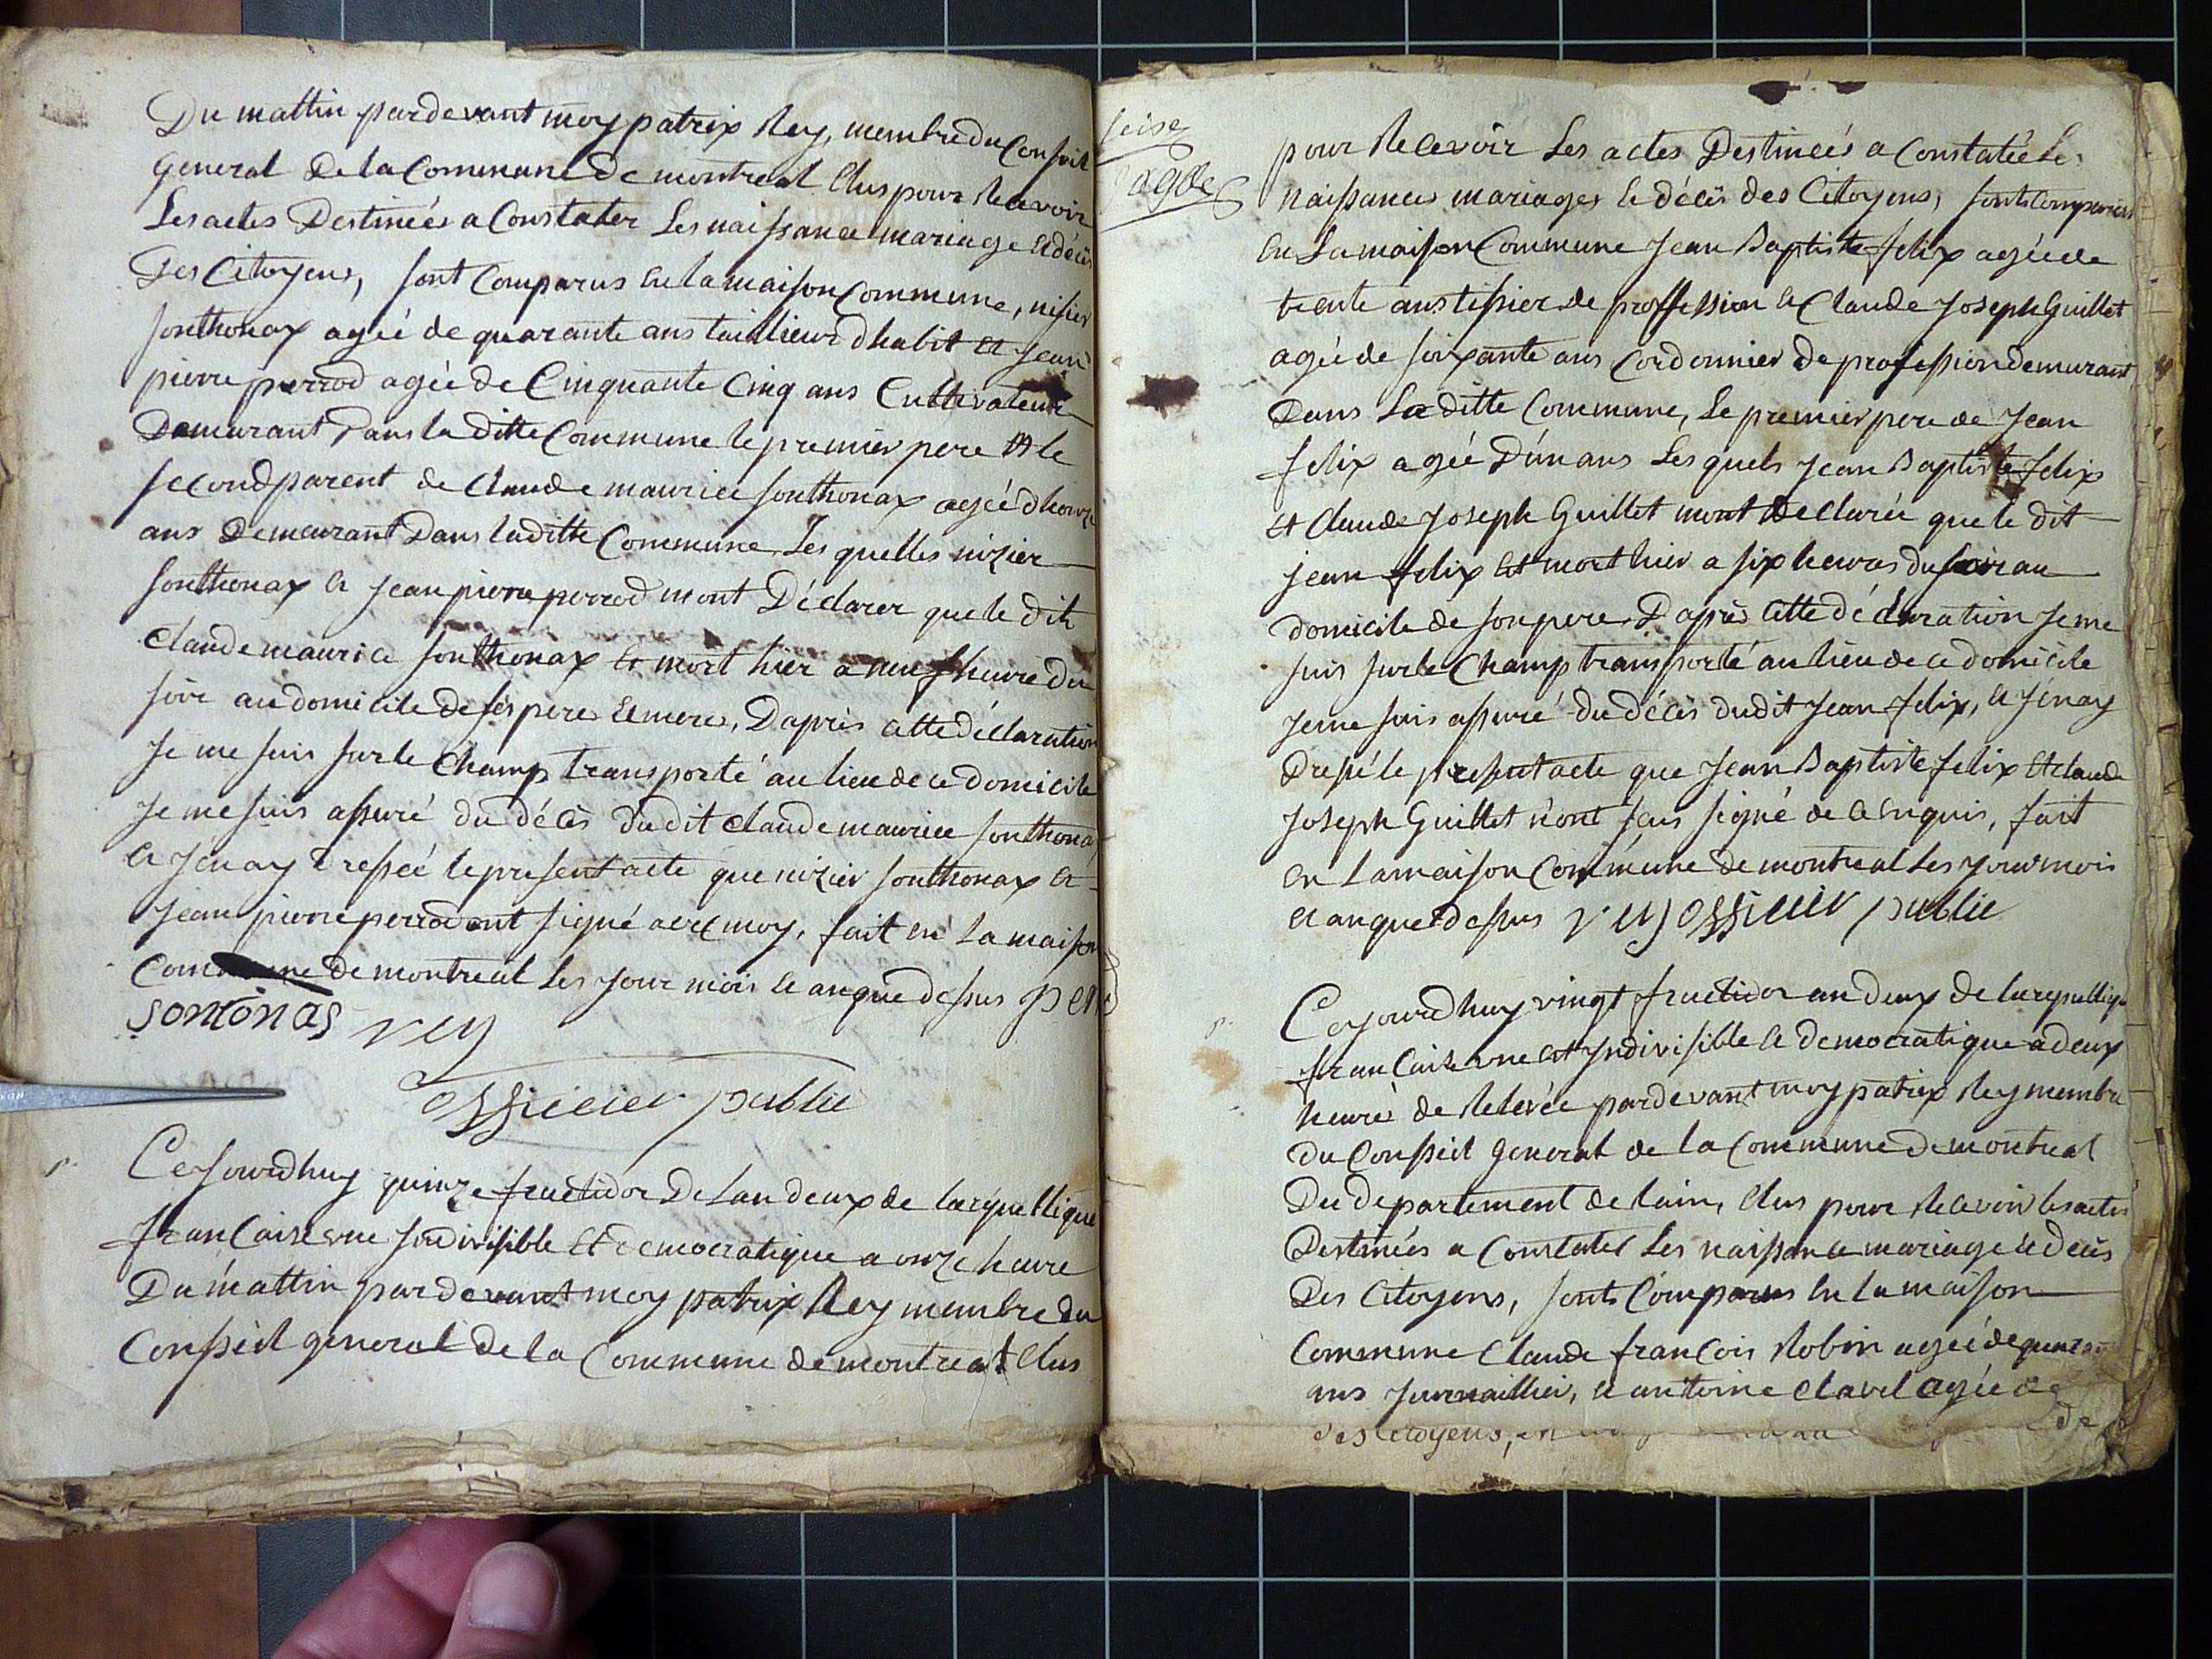 Du mattin pardevant moy patrix Rey, membre du Conseil
general De la Commune De montreal Elus pour Recevoir
Les actes Destineés a Constater Les naissance mariage et décès
Des Citoyens, sont Comparus en la maison Commune, nisier
sonthonax ageé de quarante ans tailleur dhabit et jean
pierre perrod ageé de Cinquante Cinq ans Cultivateur
Demurant Dans la ditte Commune le premier pere et le
second parent de Claude maurice sonthonax ageé dhonze
ans Demeurant Dans laditte Commune Les quelles nizier
sonthonax et jean pierre perrod mont Déclarer que le dit
Claude maurice sonthonax et mort hier a neuf heure du
soir au domicile de ses pere et mere, Dapres cette déclaration
je me suis sur le Champ transporté au lieu de ce domicile
je me suis assuré du décès dudit Claude maurice sonthonax
et jenay dresseé le present acte que nizier sonthonax et
jean pierre perrod ont signé avec moy, fait en la maison
Commune de montreal Les jour mois et an que dessus per
sontonas rey
officier public
Cejourdhuy quinze fructidor De Lan deux de la republlique
francaise une indivisible et democratique a onze heure
Du mattin pardevant moy patrix Rey membre du
Conseil general de la Commune de montreal Elus
seize
page
pour Recevoir Les actes Destineés a Constateé Les
naissances mariages et décès des Citoyens, sont comparus
En La maison Commune jean Baptiste felix ageé de
trente ans tissier de proffession et Claude joseph Guillet
ageé de soixante ans Cordonnier de profession demurant
Dans La ditte Commune, Le premier pere de jean
felix ageé D'un ans Lesquels jean Baptiste felix
et Claude joseph Guillet mont declareé que le dit
jean felix et mort hier a six heures du soir au
domicile de son pere, Dapres cette déclaration je me
suis sur le Champ transporté au lieu de ce domicile
je me suis assuré du décès dudit jean felix, et jenay
dressé le present acte que jean Baptiste felix et claude
joseph Guillet n'ont pas signé de ce enquis, fait
en La maison Commune de montreal Les jour mois
et an que dessus rey officier public
Cejourdhuy vingt fructidor an deux de la republlique
francaise une et indivisible et democratique a deux
heure de Relevée pardevant moy patrix Rey membre
Du Conseil General de la Commune de montreal
Du departement de lain, Elus pour Recevoir les actes
Destineés a Constater Les naissance mariage et decès
Des Citoyens, sont Comparus En La maison
Commune Claude francois Robin ageé de quarante
ans journaillier, et antoine Clavel ageé de
des citoyens, en